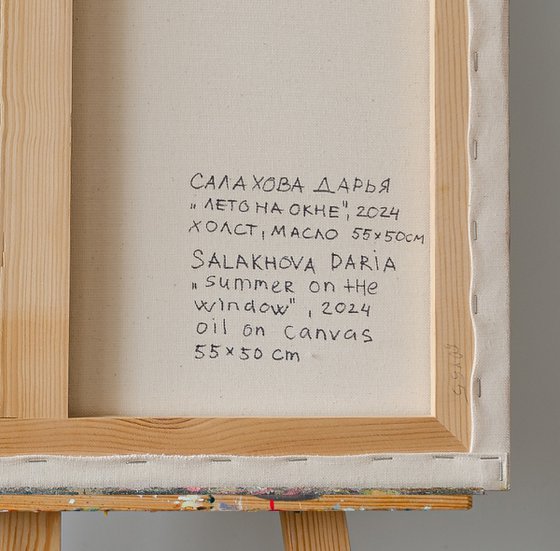 САЛАХОВА ДАРЬЯ
„ЛЕТО НА ОКНЕ", 2024
ХОЛСТ, МАСЛО 55×50СМ
SALAKHOVA DARiA
„Summer on tHe
window" , 2024
oil on canvas
55×50 cm